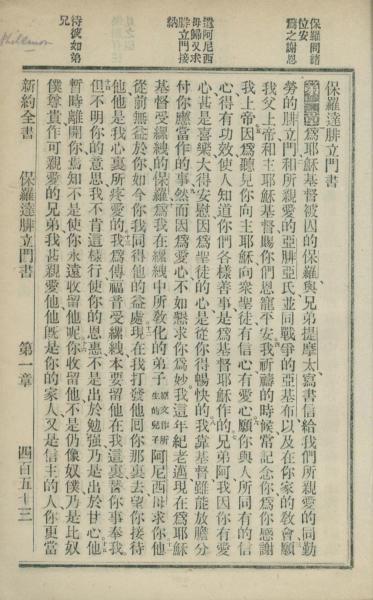 保羅問諸
位安
為之謝恩
遣阿尼西
母歸又求
腓立門接
納
待彼如弟
兄
Philemon
保羅達腓立門書
為耶穌基督被囚的保羅、與兄弟提摩太、寫書信給我們所親愛的同勤
勞的腓立門和所親愛的亞腓亞氏並同戰爭的亞基布以及在你家的敎會願
我父上帝和主耶穌基督賜你們恩寵平安我祈禱的時候常記念你為你感謝
我上帝因為聽見你向主耶穌向衆聖徒有信心有愛心願你與人所同有的信
心得有功效使人知道你們各樣善事是為基督耶穌作的兄弟阿我因你有愛
心甚是喜樂大得安慰因為聖徒的心是從你得暢快的我靠基督雖能放膽分
付你應當作的事然而因為愛心不如懇求你為妙我這年紀老邁現在為耶穌
基督受縲絏的保羅為我在縲絏中所敎化的弟子原文作所生的兒子阿尼西母求你他
從前無益於你如今你我同得他的益處現在我打發他回你那裏去望你接待
他他是我心裏所疼愛的我為傳福音受縲絏本要留他在我這裏替你事奉我
但不明你的意思我不肯這樣行使你的恩惠不是出於勉強乃是出於甘心他
暫時離開你焉知不是使你永遠收留他呢你收留他不是仍像奴僕乃是比奴
僕尊貴作可親愛的弟兄我甚親愛他他旣是你的家人又是信主的人你更當
新約全書 保羅達腓立門書 第一章 四百五十三